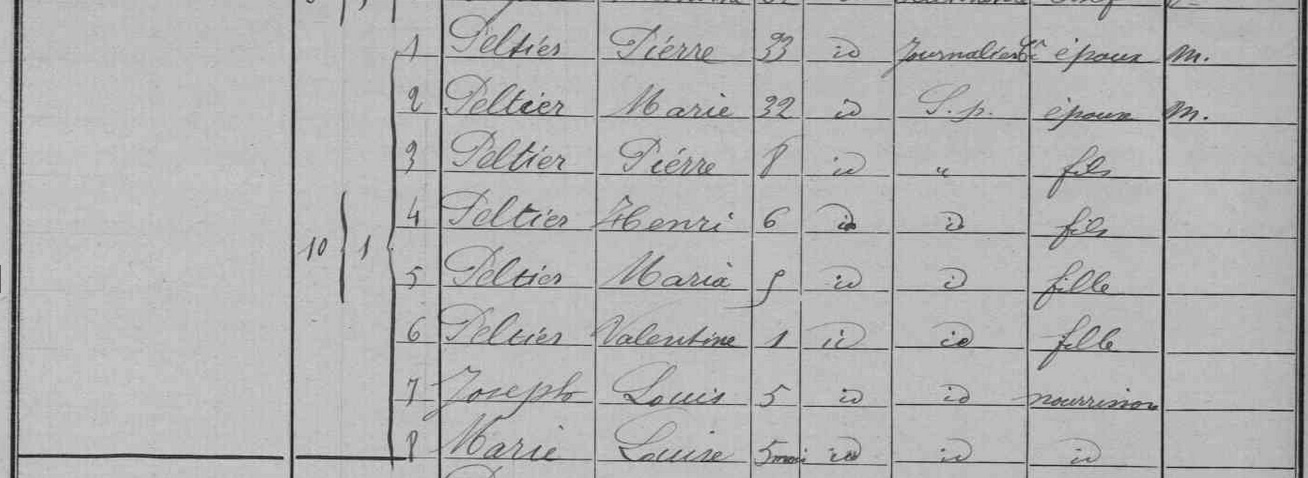 1 Peltier Pierre 33 id Journalier époux m.
2 Peltier Marie 32 id S. p. épouse m.
3 Peltier Pierre 8 id " fils
4 Peltier Henri 6 id id fils
10 1 5 Peltier Maria 5 id id fille
6 Peltier Valentine 1 id id fille
7 Joseph Louis 5 id id nourrisson
8 Marie Louise 5 mois id id id